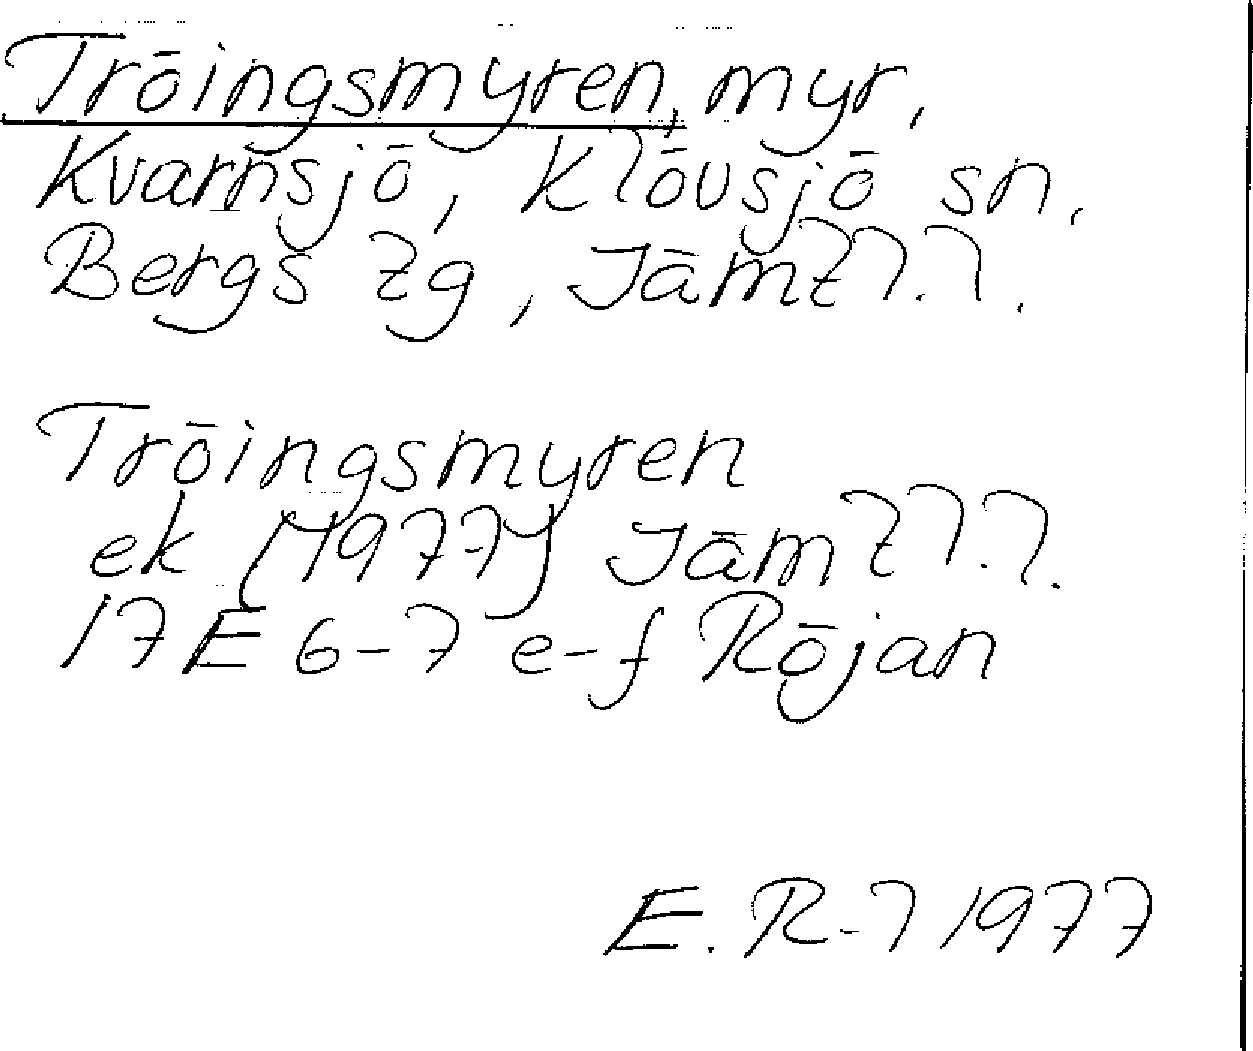 Tröingsmyren, myr,
Kvarnsjö, Klövsjö sn,
Bergs tg, Jämtl.l.
Tröingsmyren
ek (1977) Jämtl.l.
17E 6-7 e-f Röjan
E. R-l 1977